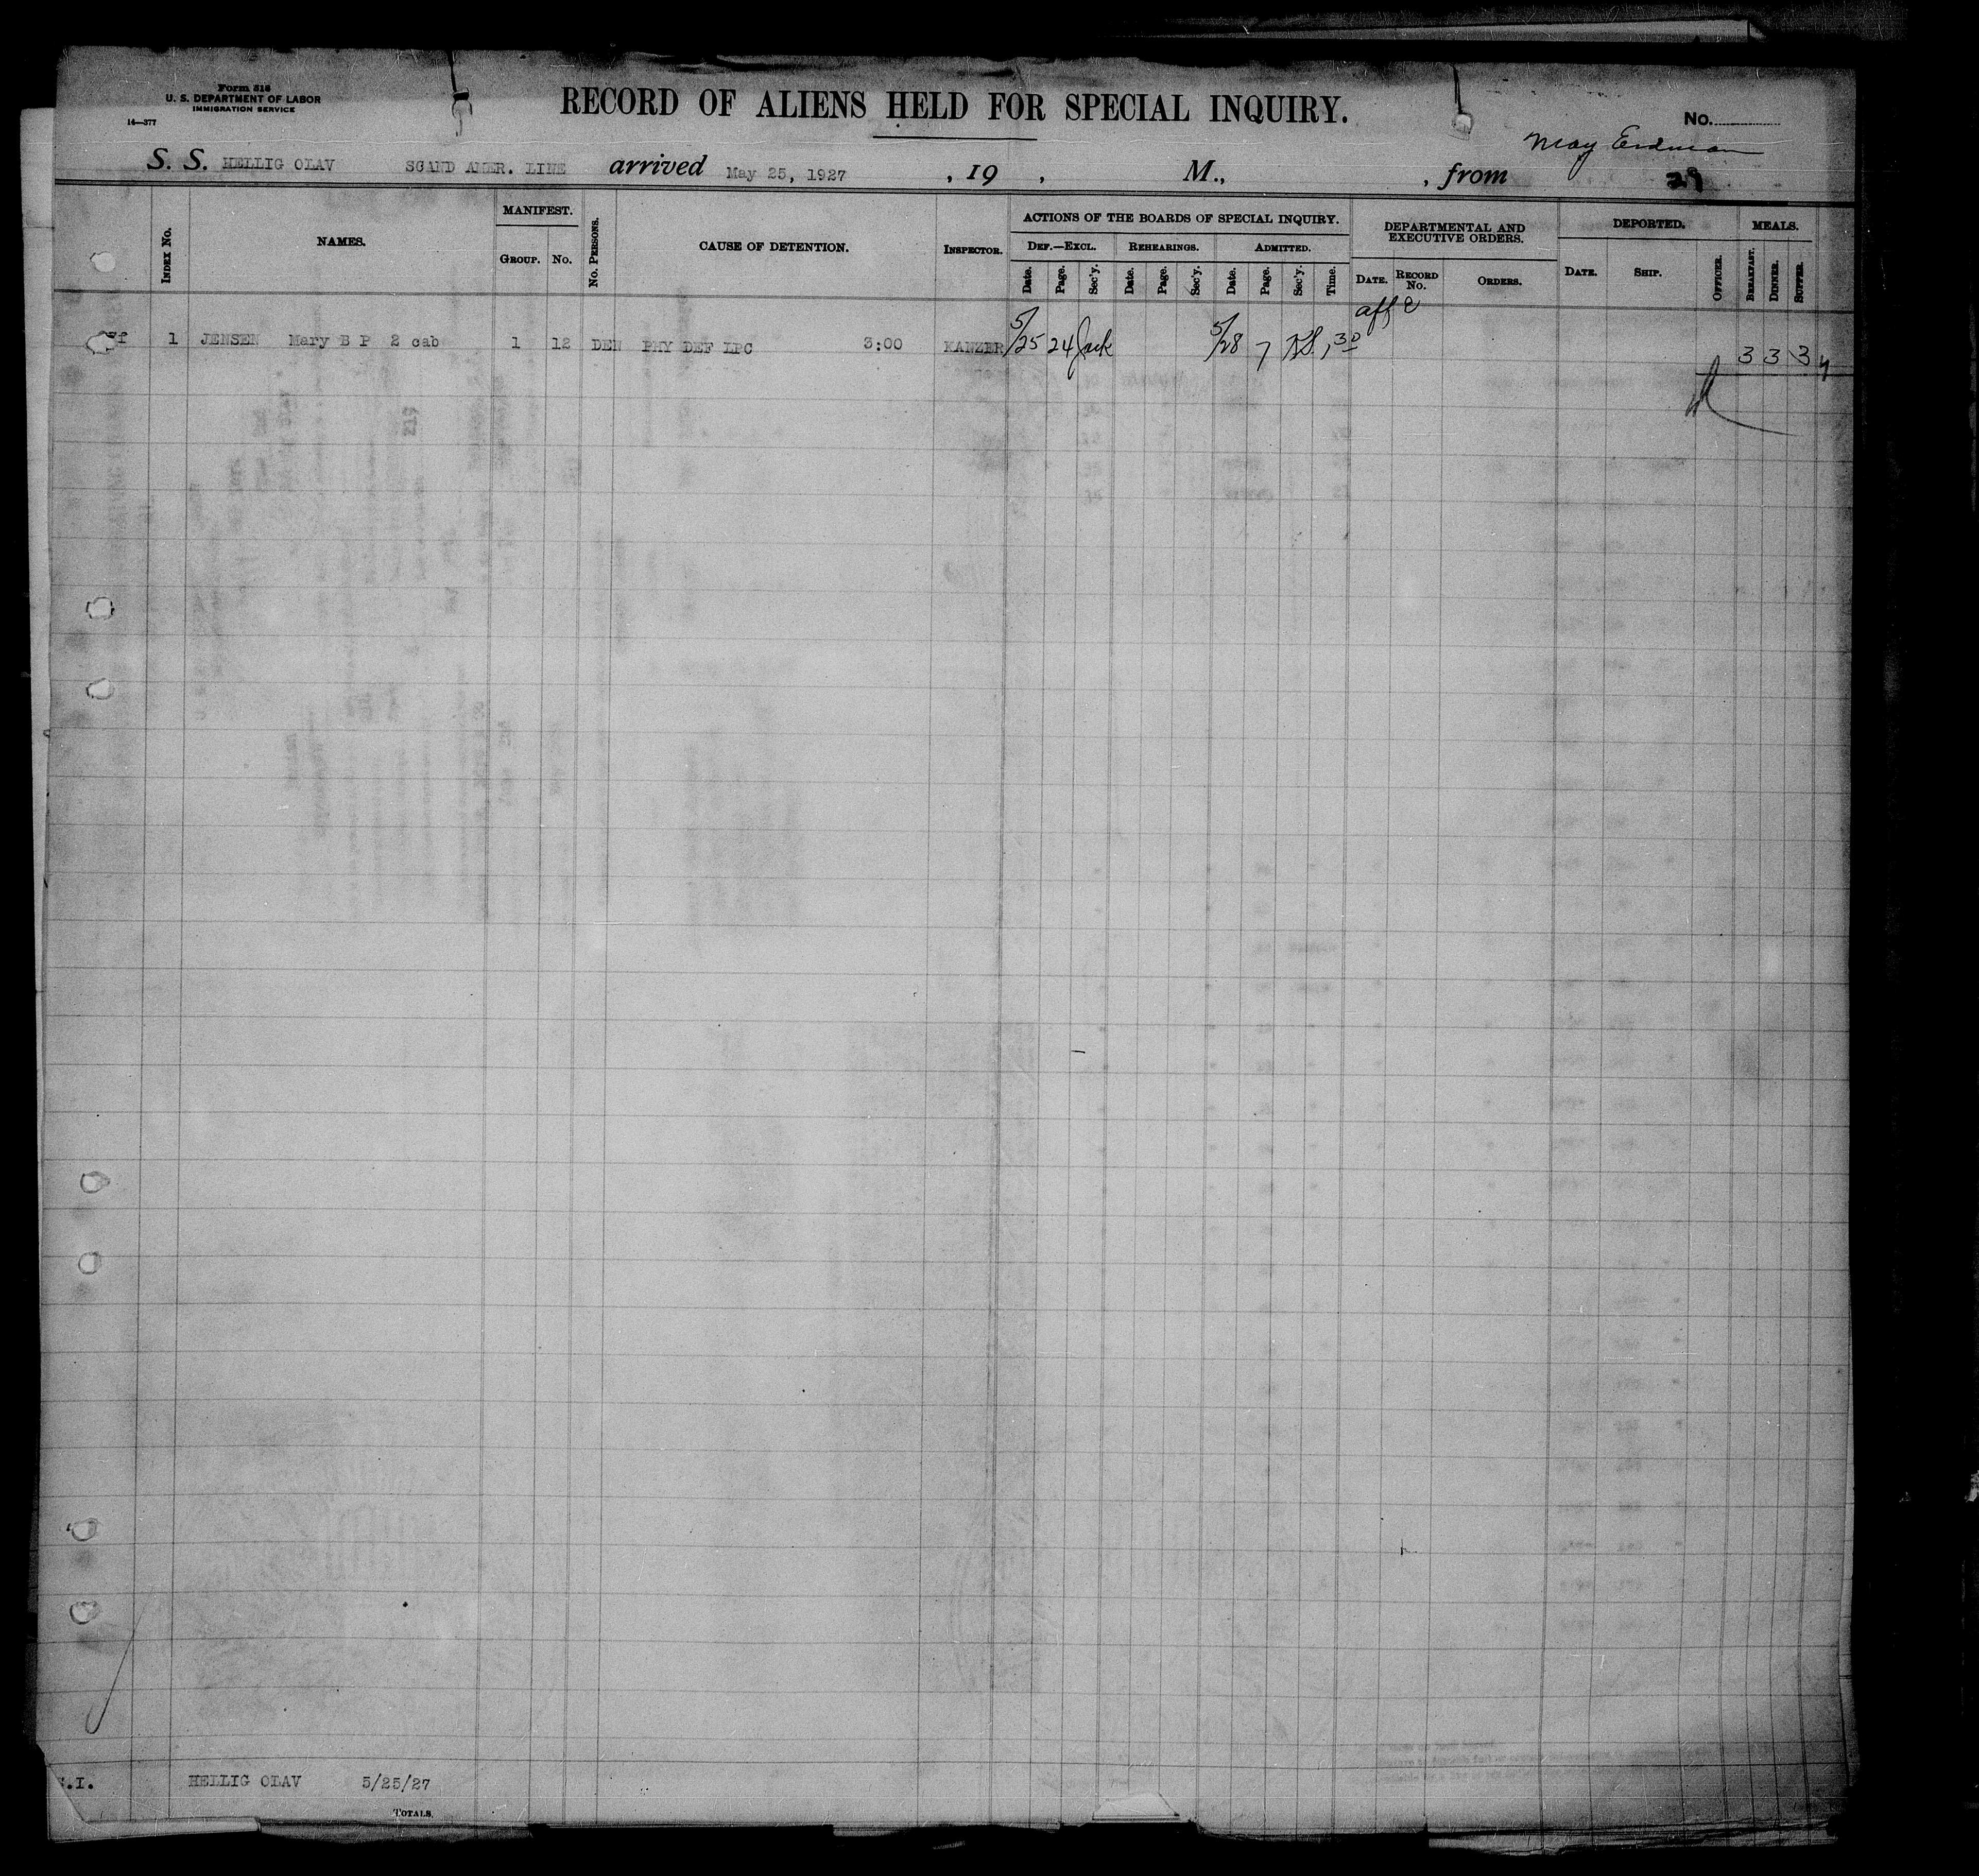 Form 518
U. S. DEPARTMENT OF LABOR
IMMIGRATION SERVICE
14—377
RECORD OF ALIENS HELD FOR SPECIAL INQUIRY.
No.
May Erdman
S. S. HELLIG OLAV SCAND AMER. LINE arrived May 25, 1927 , 19 , M., , from
29
INDEX No. NAMES. MANIFEST. GROUP. No. No. PERSONS. CAUSE OF DETENTION. INSPECTOR.
ACTIONS OF THE BOARDS OF SPECIAL INQUIRY.
DEF.—EXCL. REHEARINGS. ADMITTED.
Date. Page. Sec'y. Date. Page. Sec'y. Date. Page. Sec'y. Time.
DEPARTMENTAL AND EXECUTIVE ORDERS.
DATE. RECORD No. ORDERS.
DEPORTED.
DATE. SHIP. OFFICER.
MEALS.
BREAKFAST. DINNER. SUPPER.
1 JENSEN Mary B P 2 cab 1 12 DEN PHY DEF LPC 3:00 KANZER 5/25 24 5/28 7 3 3 3
HELLIG OLAV 5/25/27
TOTALS.